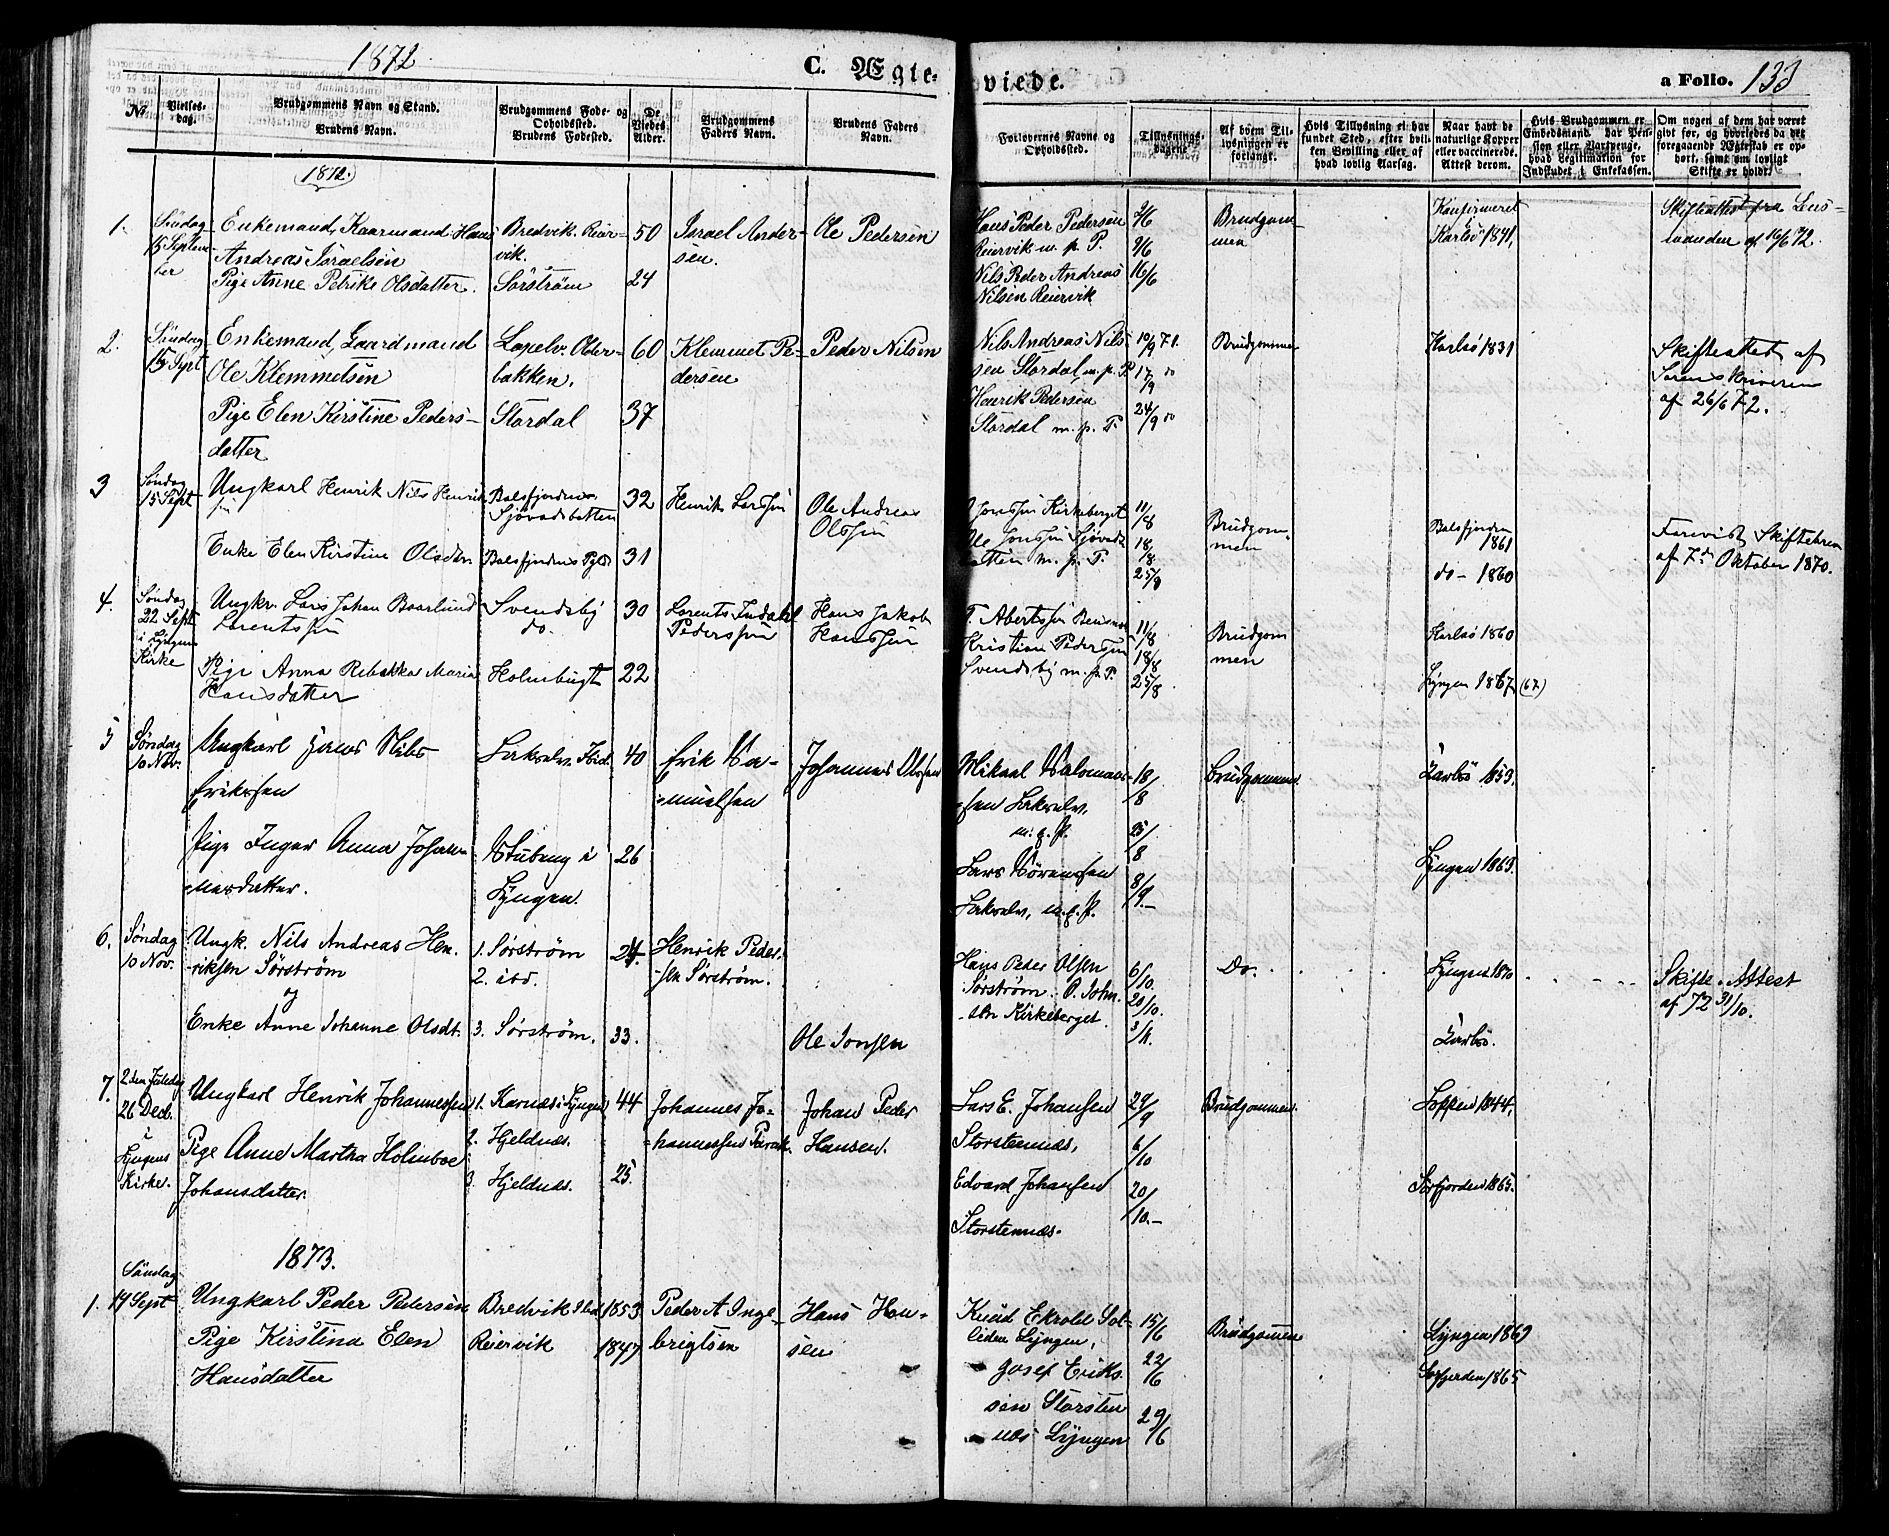 1872
C. Ægte-
viede.
a Folio. 133
No
Vielses-
dag.
Brudgommens Navn og Stand.
Brudens Navn.
Brudgommens Føde- og
Opholdssted.
Brudens Fødested.
De
Viedes
Alder.
Brudgommens
Faders Navn.
Brudens Faders
Navn.
Forlovernes Navne og
Opholdssted.
Tillysnings-
dagene
Af hvem Til-
lysningen er
forlangt.
Hvis Tillysning ei har
fundet Sted, efter hvil-
ken Bevilling eller af
hvad lovlig Aarsag.
Naar havt de
naturlige Kopper
eller vaccinerede.
Attest derom.
Hvis Brudgommen er
Embedsmand, har Pen-
sion eller Vartpenge,
hvad Legitimation for
Indskudet i Enkekassen.
Om nogen af dem har været
gift før, og hvorledes da det
foregaaende Ægteskab er op-
hørt, samt om lovligt
Skifte er holdt.
1872.
1.
Søndag
15 Septem
ber
Enkemand, Kaarmand Hans
Andreas Israelsen
Pige Anne Petrike Olsdatter.
Bredvik. Reier-
vik.
Sörström
50
24
Israel Ander-
sen.
Ole Pedersen
Hans Peder Pedersen
Reiervik m. p. P.
Nils Peder Andreas
Nilsen Reiervik
2/6
9/6
16/6
Brudgom
men
Konfirmeret
Karlsö 1841,
Skifteattest fra Lens-
manden af 10/6 72.
2.
Søndag
15 Sept
Enkemand, Gaardmand
Ole Klemmetsen
Pige Elen Kirstine Peders-
datter
Lapelv. Older-
bakken.
Stordal
60
37
Klemmet Pe-
dersen
Peder Nilsen
Nils Andreas Nils-
sen Stordal m. p. P
Henrik Pedersen
Stordal m. p. P.
10/9 71.
17/9 "
24/9 "
Brudgommen
Karlsö 1831
Skifteattest af
Sorenskriveren
af 26/6 72.
3
Søndag
15 Sept
Ungkarl Henrik Nils Henrik
sen
Enke Elen Kirstine Olsdtr.
Balsfjorden
Sjövadsbotten
Balsfjordens Pgld
32
31
Henrik Larssen
Ole Andreas
Olssen
Jonssen Kirkeberget
Ole Jonssen Sjövads
botten m. p. P.
11/8
18/8
25/8
Brudgom
men
Balsfjorden
1861
do - 1860
Forevist Skiftebrev
af 7de Oktober 1870.
4.
Søndag
22 Sept
i Lyngens
Kirke
Ungkr. Lars Johan Baarlund
Lorentssen
Pige Anna Rebekka Maria
Hansdatter
Svendsby
do.
Holmbugt
30
22
Lorents Indahl
Pederssen
Hans Jakob
Hanssen
Kristian Pederssen
Svendsby m. p. P.
11/8
18/8
25/8
Brudgom
men
Karlsö 1860
Lyngen 1867 (67)
5
Søndag
10 Nov.
Ungkarl Hans Nils
Erikssen
Pige Inger Anna Johan-
nesdatter.
Lakselv. Ibid.
Stubeng i
Lyngen
40
26
Erik Sa-
muelsen
Johannes Olssen
Mikael Salomon-
sen Lakselv
m. p. P.
Lars Sörenssen
Lakselv, m. p. P.
18/8
25/8
8/9.-
Brudgommen.
Karlsö 1853.
Lyngen 1863.
6.
Søndag
10 Nov.
Ungk. Nils Andreas Hen.
-riksen Sørstrøm
og
Enke Anne Johanne Olsdt.
1. Sørstrøm
2. ibd.
3. Sørstrøm.
24.
33.
Henrik Peder-
sen Sørstrøm.
Ole Jonsen
Hans Peder Olsen
Sørstrøm. P. John.
-sen Kirkeberget.
6/10.
20/10.
3/11.
Do.
Lyngen 1870
Karlsö.
Skifte-Attest
af 72 31/10.
7.
2den Juledag
26 Dec.
i
Lyngens
Kirke.
Ungkarl Henrik Johannessen
Pige Anne Martha Holmboe
Johansdatter.
1. Karnæs i Lyngen
2. Hjeldnæs.
3. Hjeldnæs.
44
25.
Johannes Jo-
hannessen
Johan Peder
Hansen.
Lars E. Johansen
Storstennæs,
Edvard Johansen
Storstennæs.
29/9
6/10
20/10.-
Brudgommen.
Loppen 1844,
Sørfjorden 1865.
1873.
1.
Søndag
14 Sept
Ungkarl Peder Pedersen
Pige Kirstina Elen
Hansdatter
Bredvik Ibid.
Reiervik
1853
1847
Peder A Inge-
brigtsen
Hans Han-
sen
Knud Ekrold Sol-
liden Lyngen,
Josef Eriks
sen Storsten
næs Lyngen
15/6
22/6
29/6
Brudgommen
Lyngen 1869
Sørfjorden 1865